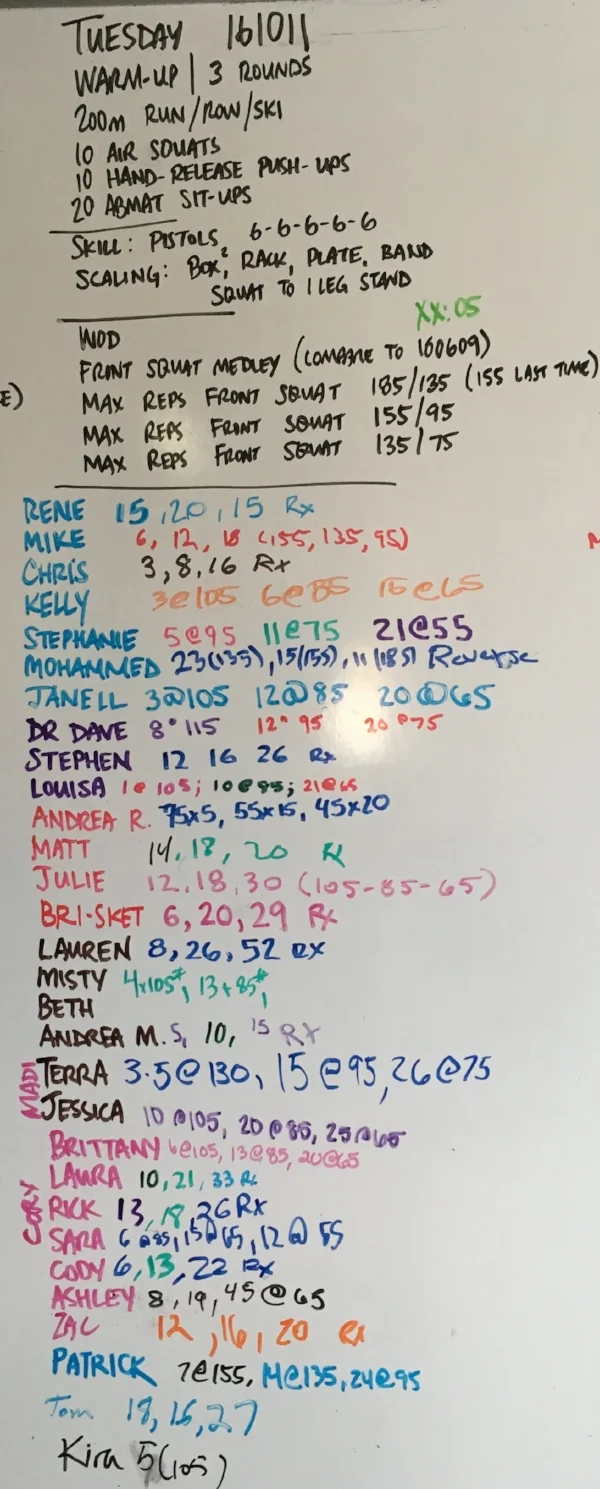 TUESDAY 161011
WARM-UP | 3 ROUNDS
200M RUN/ROW/SKI
10 AIR SQUATS
10 HAND-RELEASE PUSH-UPS
20 ABMAT SIT-UPS
SKILL: PISTOLS 6-6-6-6-6
SCALING: BOX, RACK, PLATE, BAND
SQUAT TO 1 LEG STAND
XX:05
WOD
FRONT SQUAT MEDLEY (COMPARE TO 160609)
E) MAX REPS FRONT SQUAT 185/135 (155 LAST TIME)
MAX REPS FRONT SQUAT 155/95
MAX REPS FRONT SQUAT 135/75
RENE 15, 20, 15 Rx
MIKE 6, 12, 18 (155, 135, 95)
CHRIS 3, 8, 16 Rx
KELLY 3@105 6@85 15@65
STEPHANIE 5@95 11@75 21@55
MOHAMMED 23(135), 15(155), 11(185) Reverse
JANELL 3@105 12@85 20@65
DR DAVE 8@115 12@95 20@75
STEPHEN 12 16 26 Rx
LOUISA 1@105; 10@85; 21@65
ANDREA R. 75x5, 55x15, 45x20
MATT 14, 18, 20 Rx
JULIE 12, 18, 30 (105-85-65)
BRI-SKET 6, 20, 29 Rx
LAUREN 8, 26, 52 RX
MISTY 4x105#, 13x85#,
BETH
ANDREA M. 5, 10, 15 RX
MADI
TERRA 3.5@130, 15@95, 26@75
JESSICA 10@105, 20@85, 25@65
BRITTANY 6@105, 13@85, 20@65
LAURA 10, 21, 33 Rx
CORY
RICK 13, 18, 26 Rx
SARA 6@85, 15@65, 12@55
CODY 6, 13, 22 Rx
ASHLEY 8, 19, 45@65
ZAC 12, 16, 20 Rx
PATRICK 7@155, 14@135, 24@95
Tom 18, 15, 27
Kira 5(105)